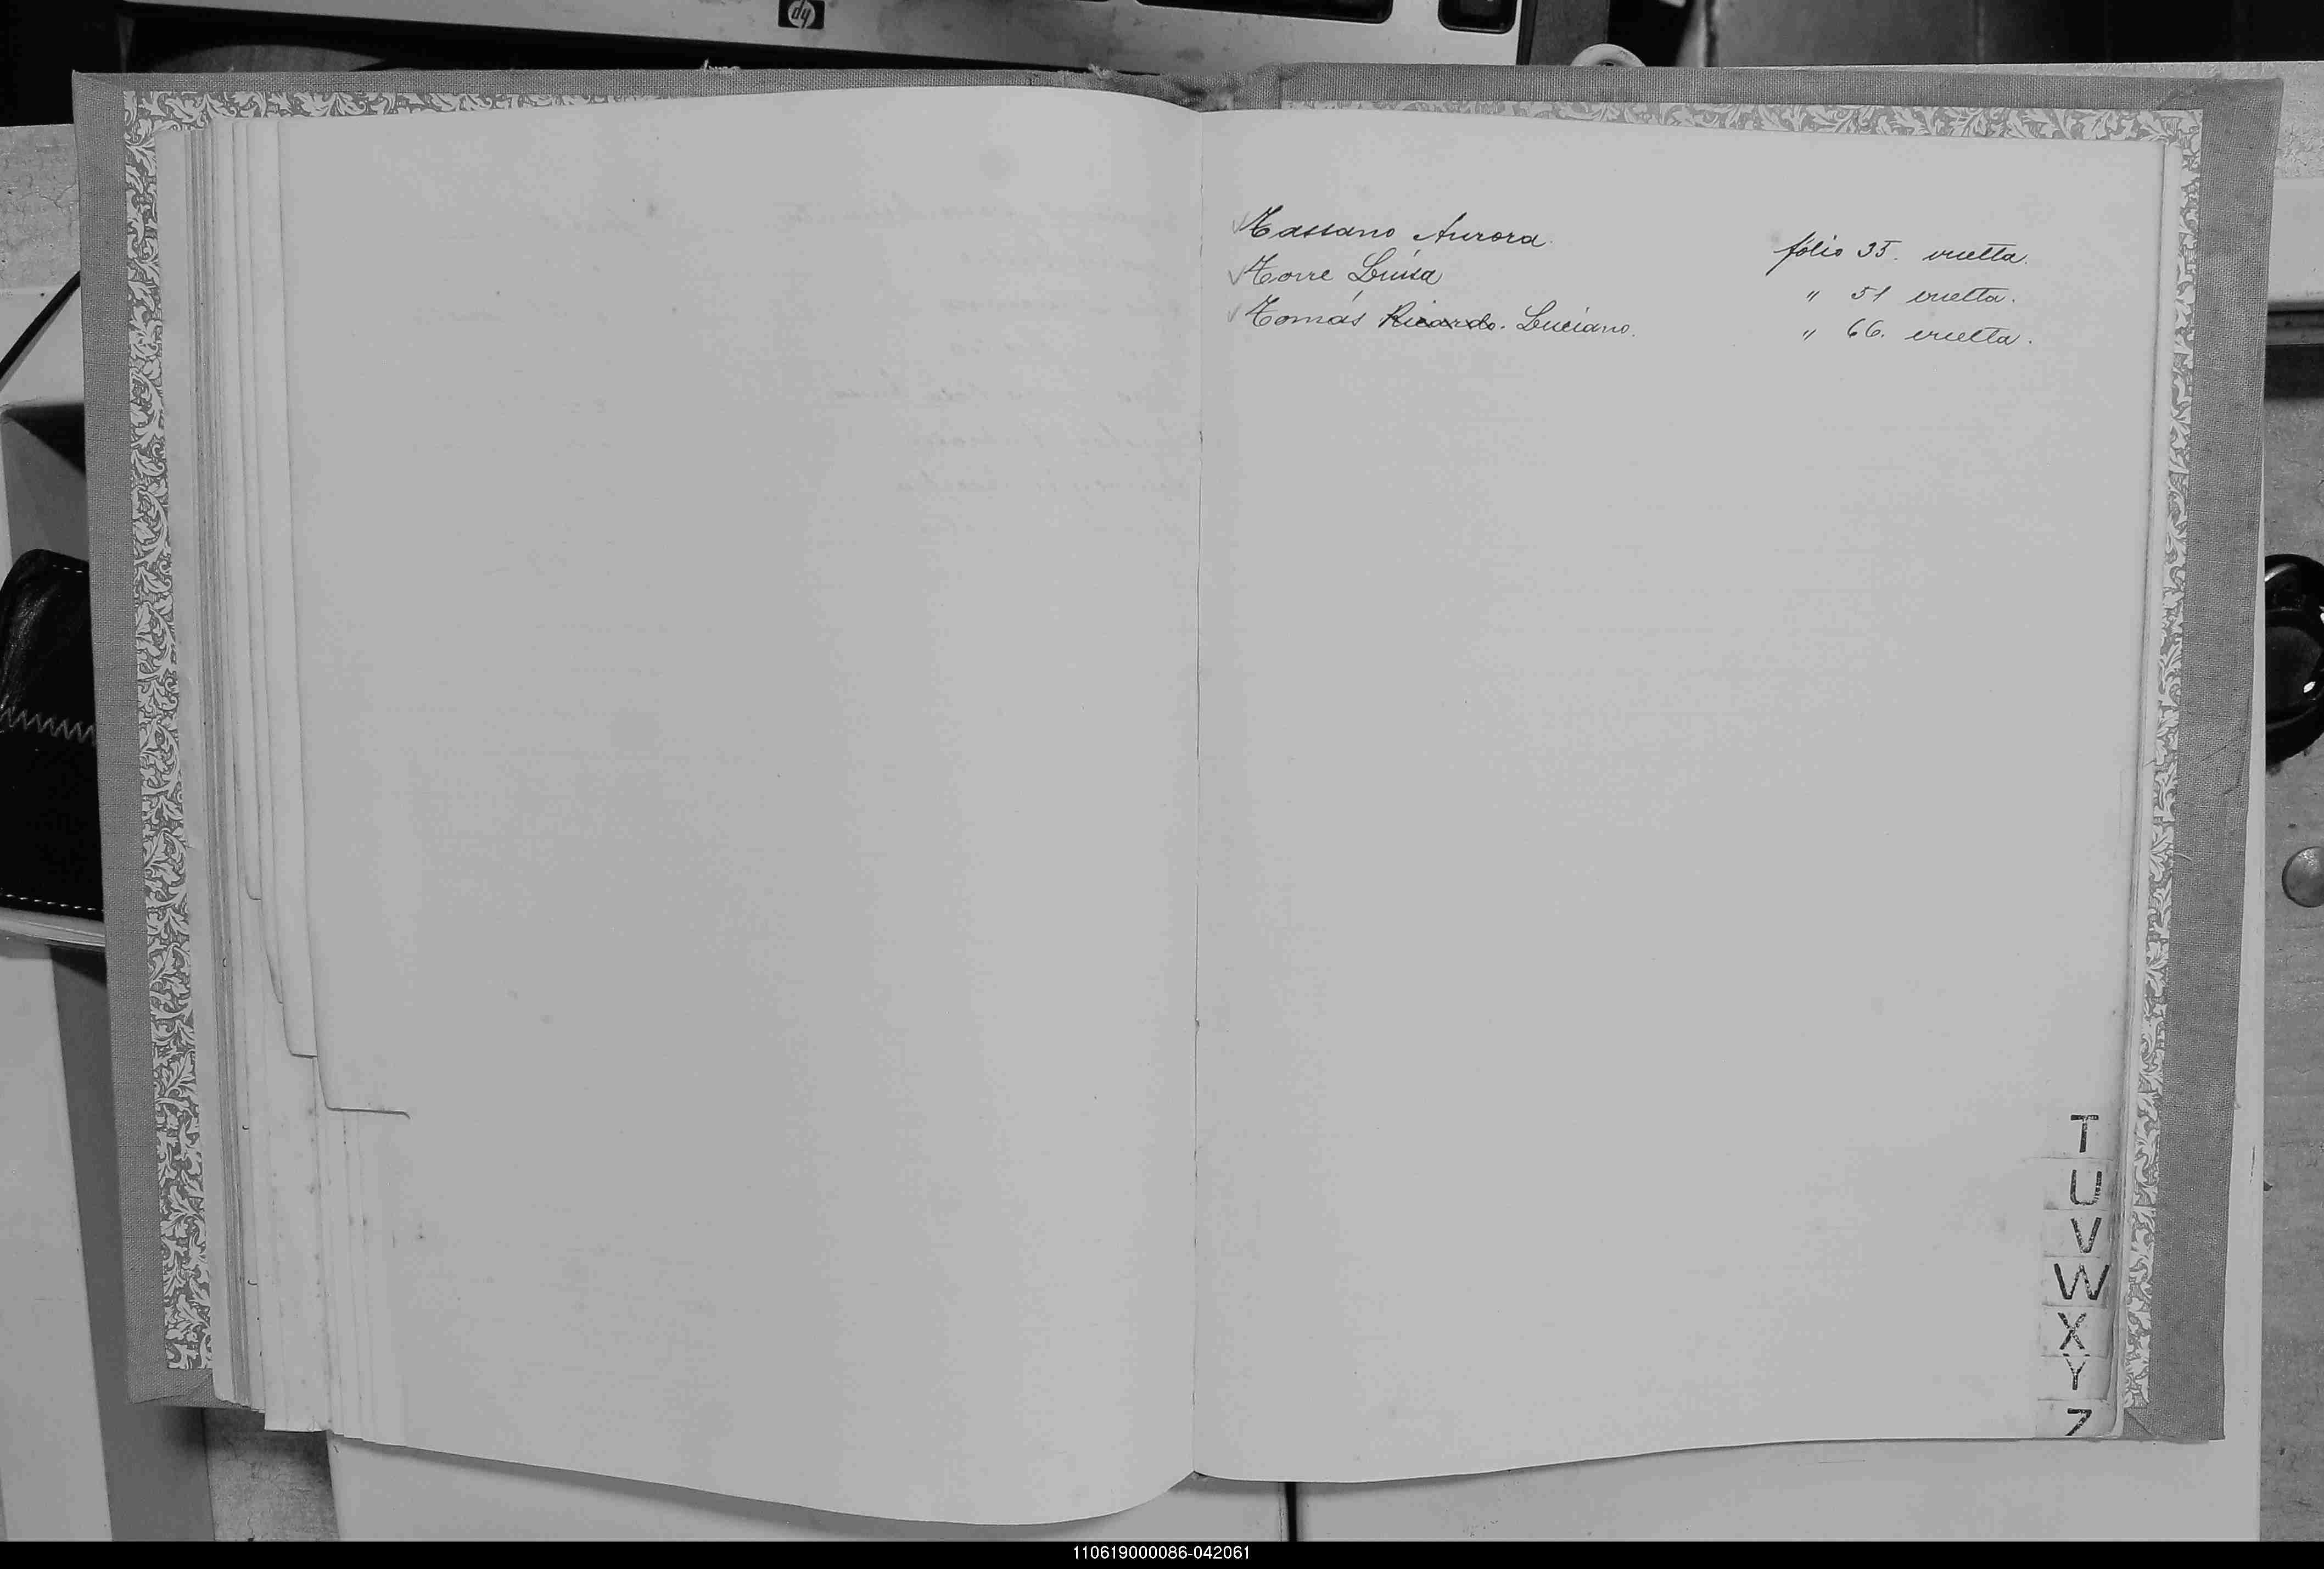 Tassano Aurora. folio 35. vuelta.
Torre Luisa " 51 vuelta.
Tomás Ricardo. Luciano. " 66. vuelta.
T
U
V
W
X
Y
Z
hp
110619000086-042061